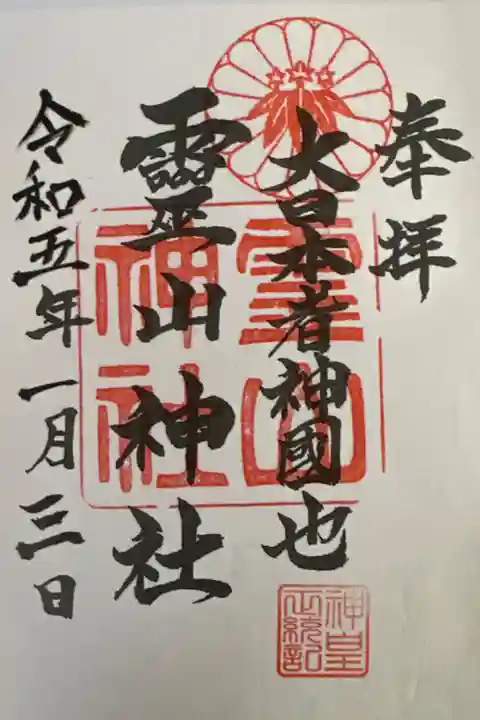 奉拝
大日本者神國也
靈山神社
令和五年一月三日
霊山
神社
神皇
正統記